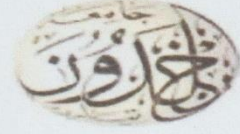 جامعة
ابن خَلدُونَ